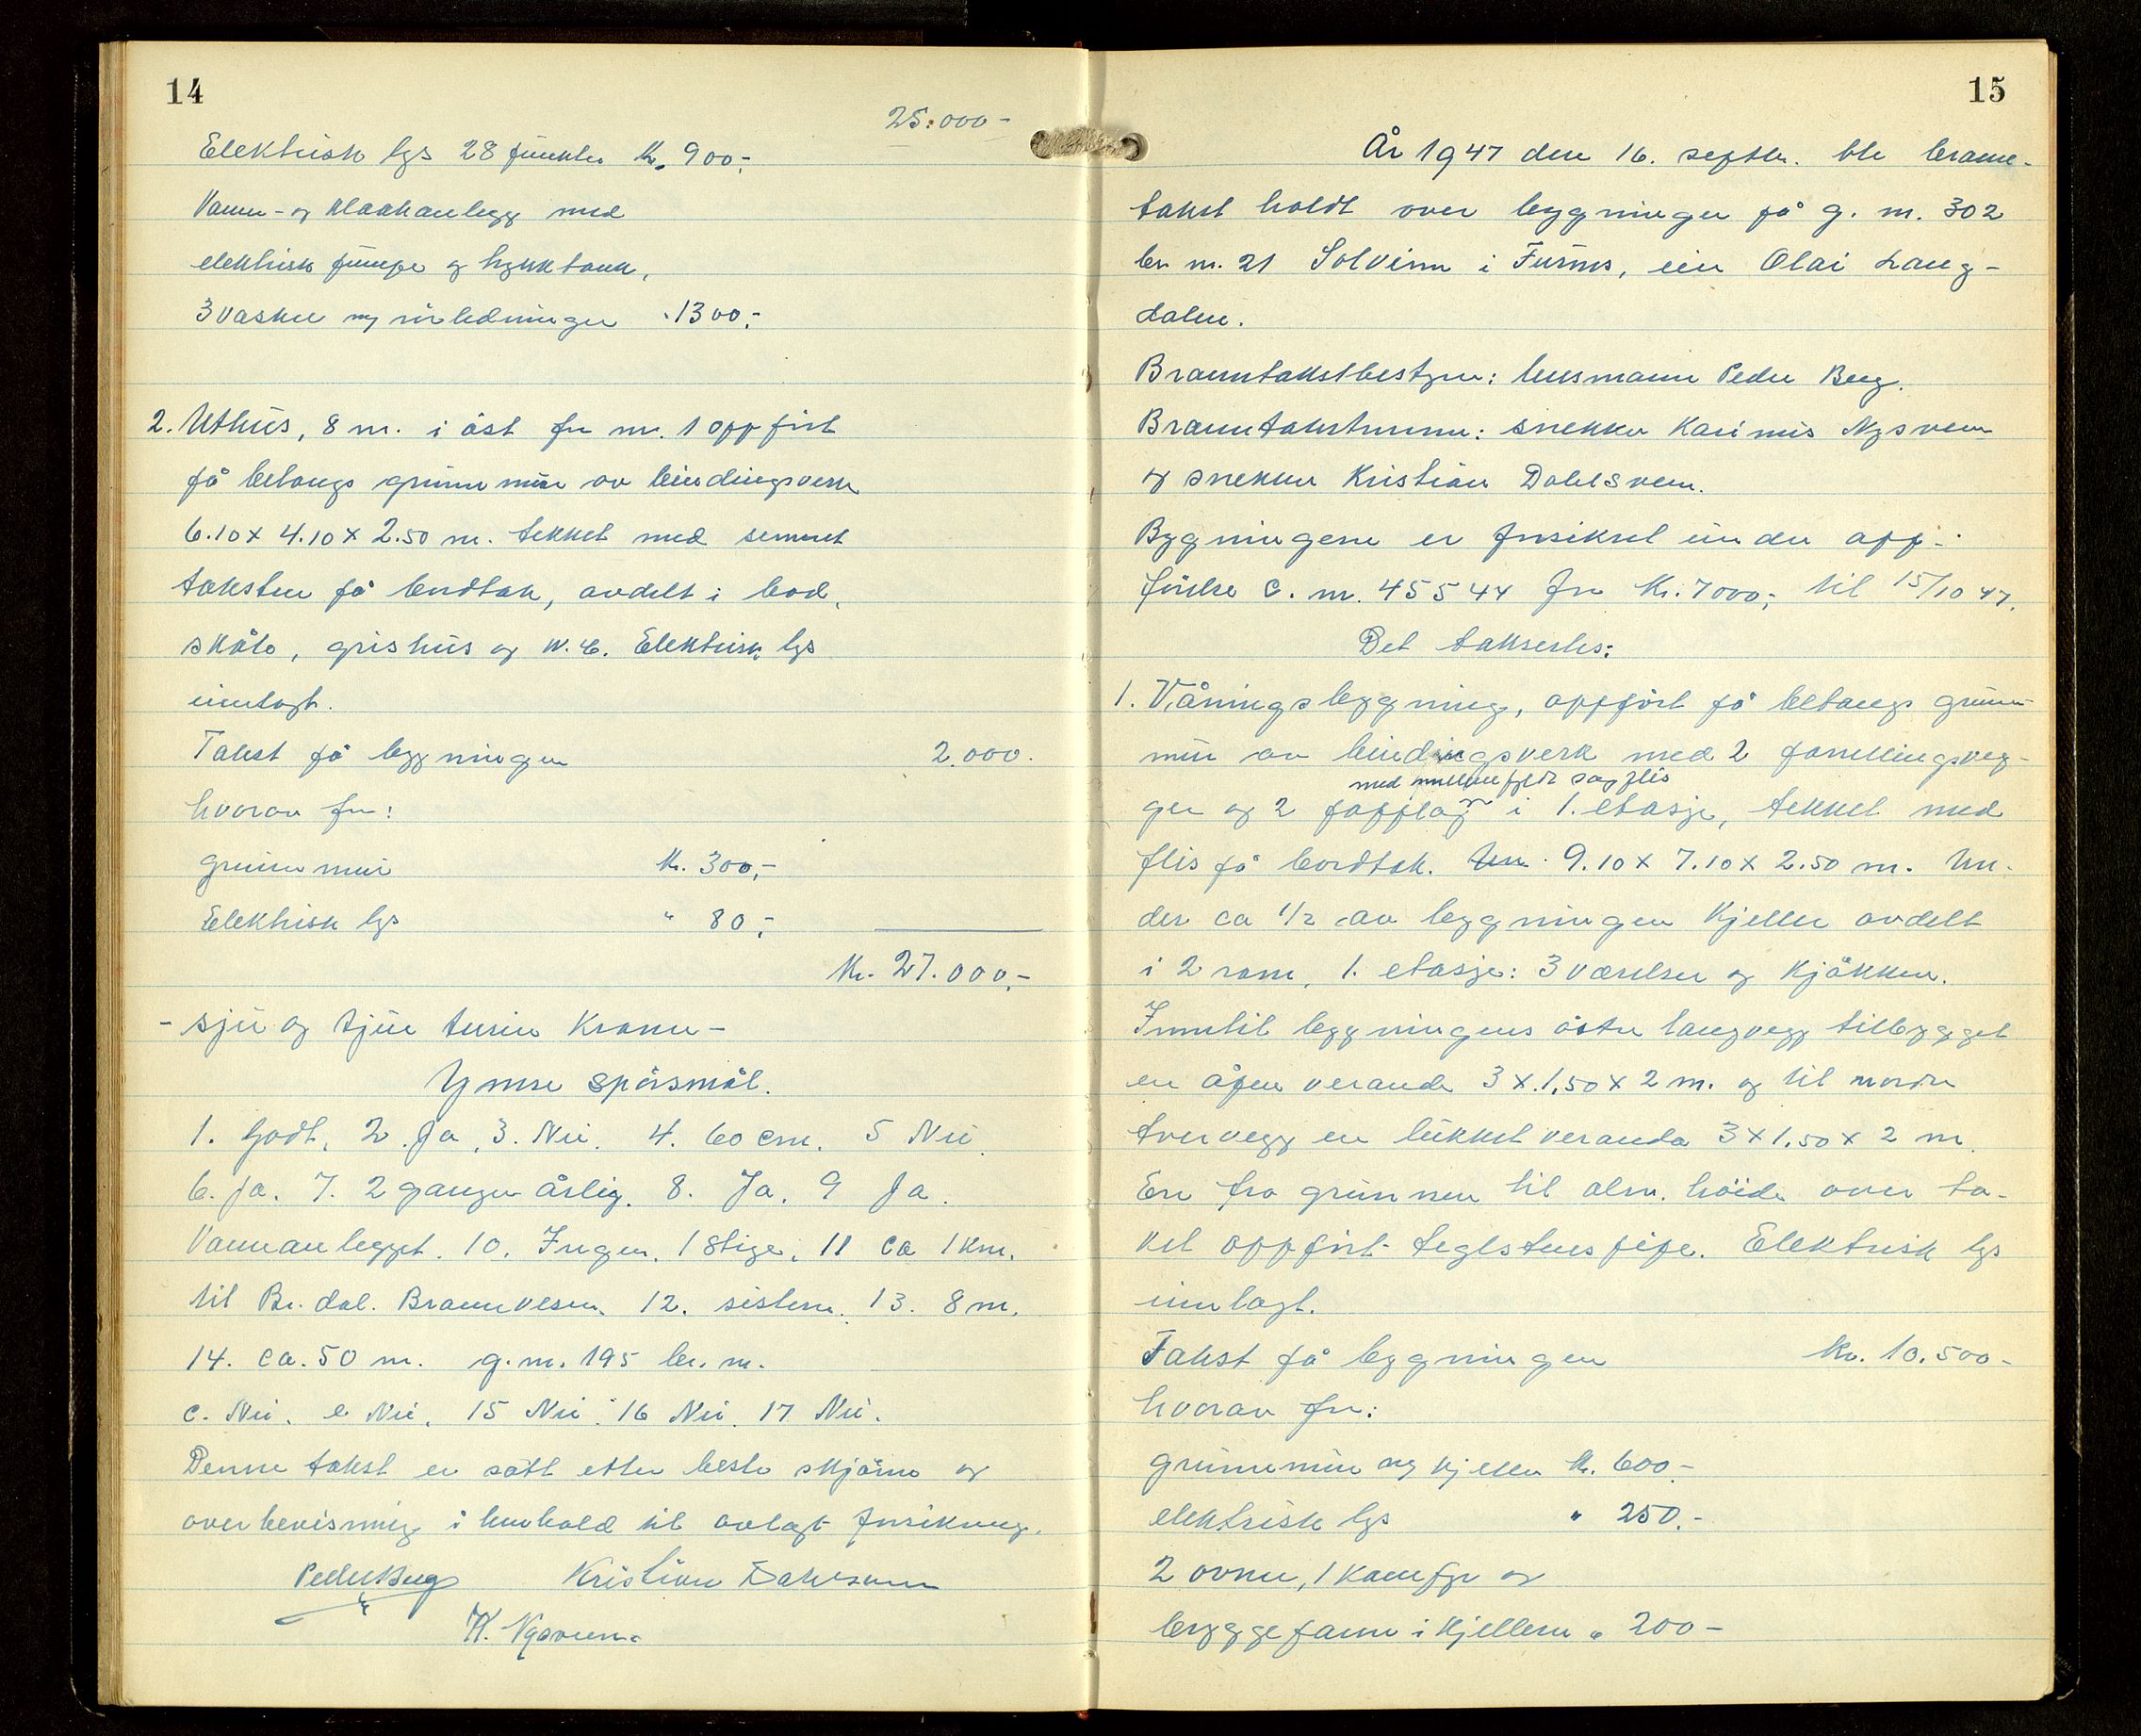 14
25.000-
Elektrisk lys 28 punkter Kr. 900,-
Vann- og kloakanlegg med
elektrisk pumpe og trykktank,
3 vasker og rørledninger " 1300,-
2. Uthus, 8 m. i öst for nr. 1 oppført
på betongs grunnmur av bindingsverk
6.10 x 4.10 x 2.50 m. tekket med sement
taksten på bordtak, avdelt i bod,
skåle, grishus og W.C. Elektrisk lys
innlagt.
Takst på bygningen 2.000.
hvorav for:
grunnmur Kr. 300,-
Elektrisk lys " 80,-
Kr. 27.000,-
- sju og tjue tusen Kroner -
Ymse spörsmål.
1. Godt, 2. Ja, 3. Nei. 4. 60 cm. 5 Nei.
6. Ja. 7. 2 ganger årlig. 8. Ja. 9 Ja.
Vannanlegget. 10. Ingen. 1 stige. 11 ca 1 km.
til Br. dal. Brannvesen. 12. sistern. 13. 8 m.
14. ca. 50 m. g.nr. 195 br. nr.
c. Nei. e Nei. 15 Nei. 16 Nei. 17 Nei.
Denne takst er satt etter beste skjönn og
overbevisning i henhold til avlagt forsikring.
Peder Berg Kristian Dahlsveen
K. Nysveen.
15
År 1947 den 16. septbr. ble brann-
takst holdt over bygninger på g. nr. 302
br. nr. 21 Solvinn i Furnes, eier Olai Lang-
dalen.
Branntakstbestyrer: lensmann Peder Berg.
Branntakstmenn: snekker Karinius Nysveen
og snekker Kristian Dahlsveen.
Bygningene er forsikret under opp-
førelse C. nr. 45544 for Kr. 7000,- til 15/10 47.
Det takseres:
1. Våningsbygning, oppført på betongs grunn-
mur av bindingsverk med 2 panelingsveg-
med mellemfyldt sagflis
ger og 2 papplag i 1. etasje, tekket med
flis på bordtak. Un 9.10 x 7.10 x 2.50 m. Un-
der ca 1/2 av bygningen kjeller avdelt
i 2 rom, 1. etasje: 3 værelser og kjøkken.
Inntil bygningens östre langvegg tilbygget
en åpen veranda 3 x 1,50 x 2 m. og til nordre
tvervegg en lukket veranda 3 x 1,50 x 2 m.
En fra grunnen til alm. höide over ta-
ket oppført teglstens pipe. Elektrisk lys
innlagt.
Takst på bygningen Kr. 10.500-
hvorav for:
grunnmur og kjeller Kr. 600-
elektrisk lys " 250.-
2 ovner, 1 komfyr og
bryggepanne i kjelleren " 200-